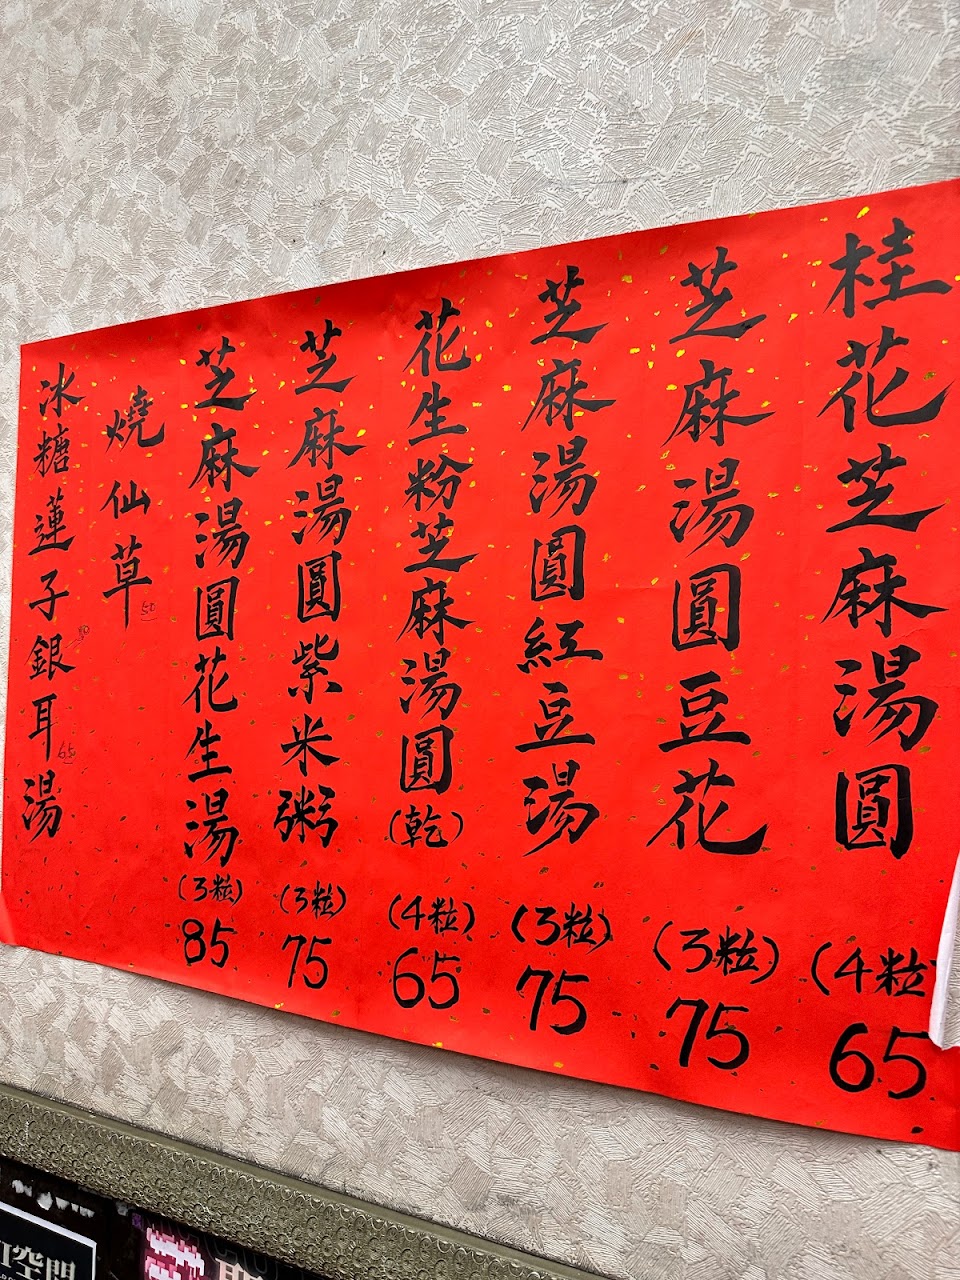 桂花芝麻湯圓
(4粒
65
芝麻湯圓豆花
(3粒)
75
芝麻湯圓紅豆湯
(3粒)
75
花生粉芝麻湯圓(乾)
(4粒)
65
芝麻湯圓紫米粥
(3粒)
75
芝麻湯圓花生湯
(3粒)
85
燒仙草
50
冰糖蓮子銀耳湯
65
空間